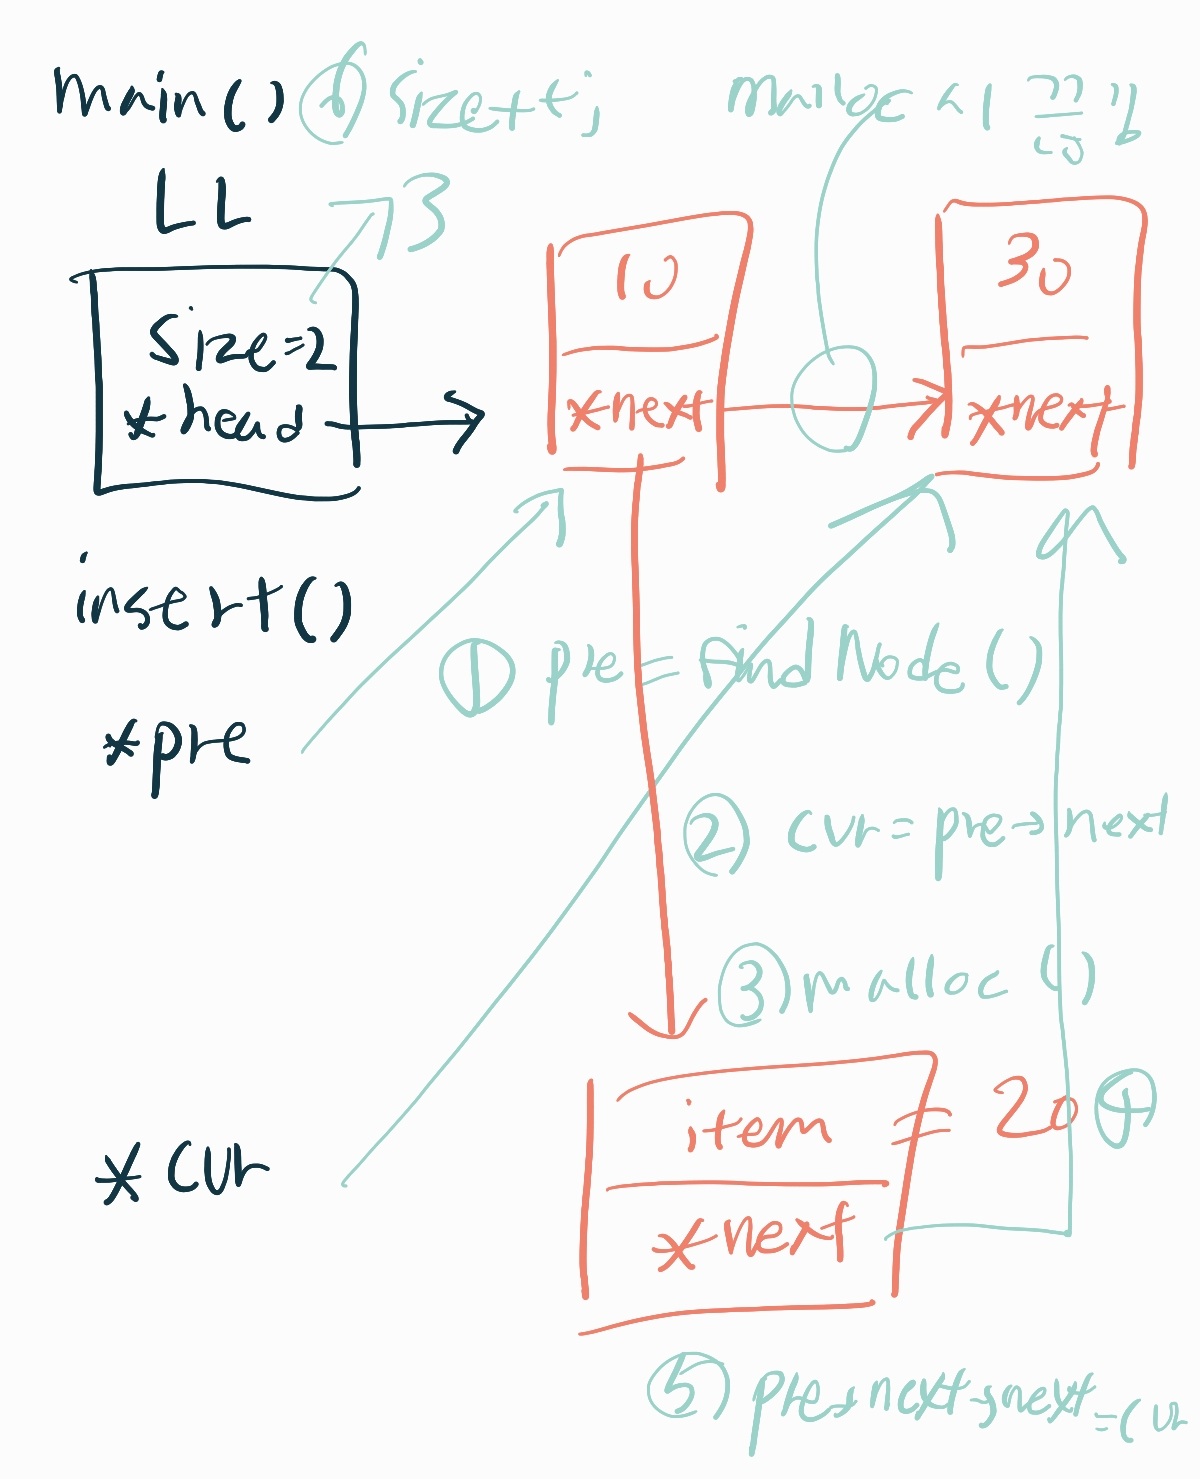 main() ⑥ Size++;
malloc시 끊김
LL
3
Size=2
*head
10
*next
30
*next
insert()
① pre = findNode()
*pre
② cur = pre→next
③ malloc()
item = 20 ④
*next
*cur
⑤ pre→next→next=cur